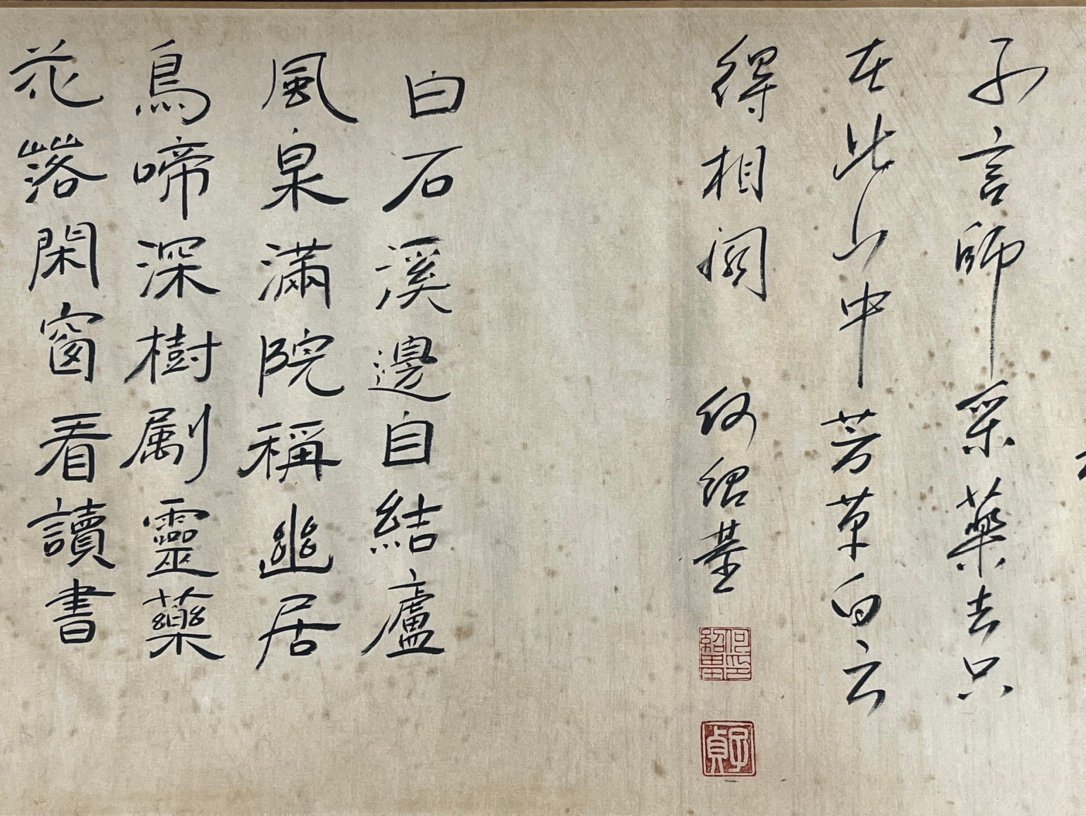 子言師采藥去只
在此山中芳草白云
得相關
何紹基
何紹基印
子貞
白石溪邊自結廬
風泉滿院稱幽居
鳥啼深樹劚靈藥
花落閑窗看讀書